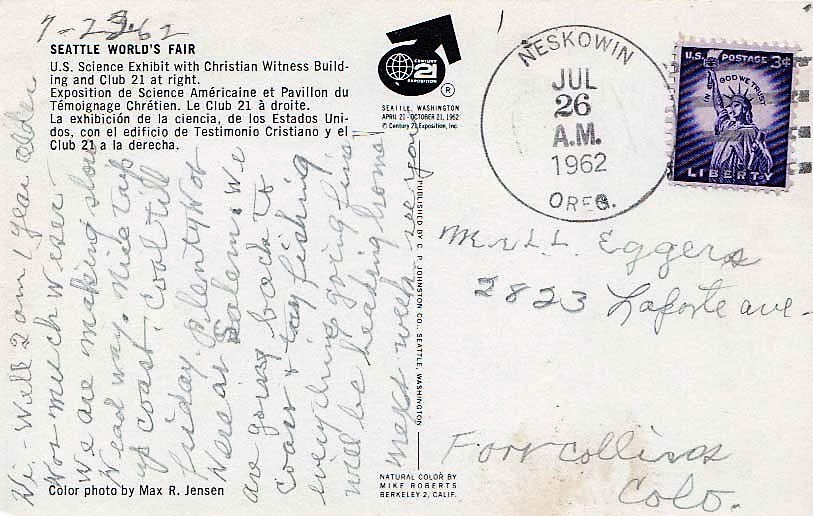 7-25-62
SEATTLE WORLD'S FAIR
U.S. Science Exhibit with Christian Witness Build-
ing and Club 21 at right.
Exposition de Science Américaine et Pavillon du
Témoignage Chrétien. Le Club 21 à droite.
La exhibición de la ciencia, de los Estados Uni-
dos, con el edificio de Testimonio Cristiano y el
Club 21 a la derecha.
Hi - Well I am 1 year older
Not much wiser -
We are making slow
Head way. Nice trip
up coast. Cool till
Friday. Plenty Hot
Here at Salem. We
are going back to
coast & try fishing
everything going fine
will be heading home
next week. see you
Color photo by Max R. Jensen
CENTURY
21
EXPOSITION
®
SEATTLE, WASHINGTON
APRIL 21 - OCTOBER 21, 1962
© Century 21 Exposition, Inc.
PUBLISHED BY C. P. JOHNSTON CO., SEATTLE, WASHINGTON
NATURAL COLOR BY
MIKE ROBERTS
BERKELEY 2, CALIF.
NESKOWIN
JUL
26
A.M.
1962
OREG.
U.S. POSTAGE 3¢
IN GOD WE TRUST
LIBERTY
L. Eggers
2823 Laporte ave-
Fort Collins
Colo.